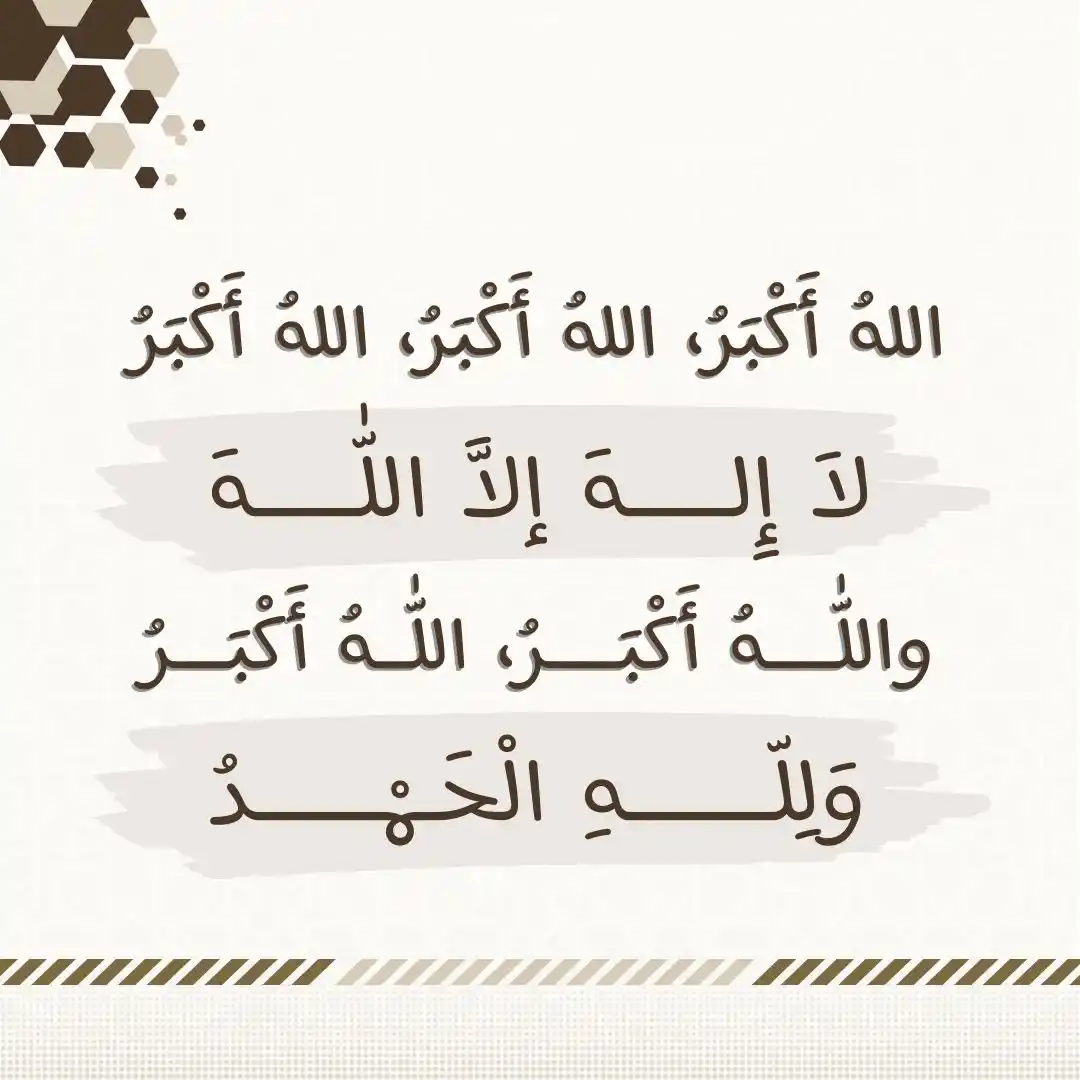 اللهُ أَكْبَرُ، اللهُ أَكْبَرُ، اللهُ أَكْبَرُ
لاَ إِلــــهَ إلاَّ اللّٰــــهَ
واللّٰـــهُ أَكْبَـــرُ، اللّٰـهُ أَكْبَـــرُ
وَلِلّــــــهِ الْحَمْـــــدُ